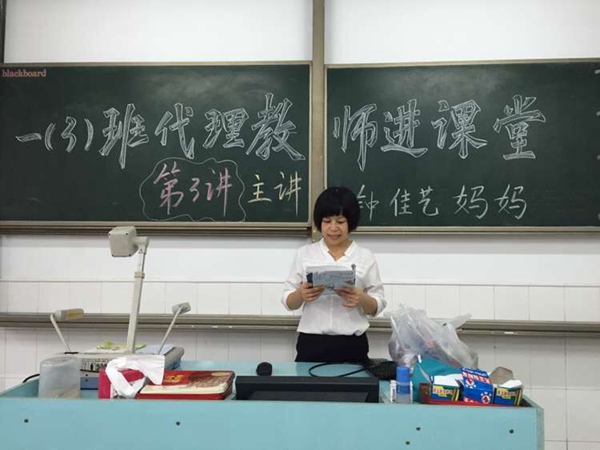 blackboard
一(3)班代理教师进课堂
第3讲 主讲 钟佳艺妈妈